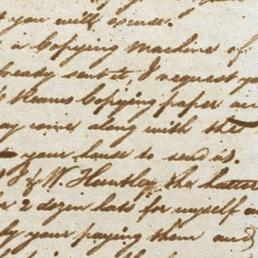 you will excuse.
a Copying Machine of
already sent it I request yo
Reams Copying paper an
may come along with the
your house to send it.
J & W. Huntley, the hatter
2 dozen hats for myself a
by your paying them and